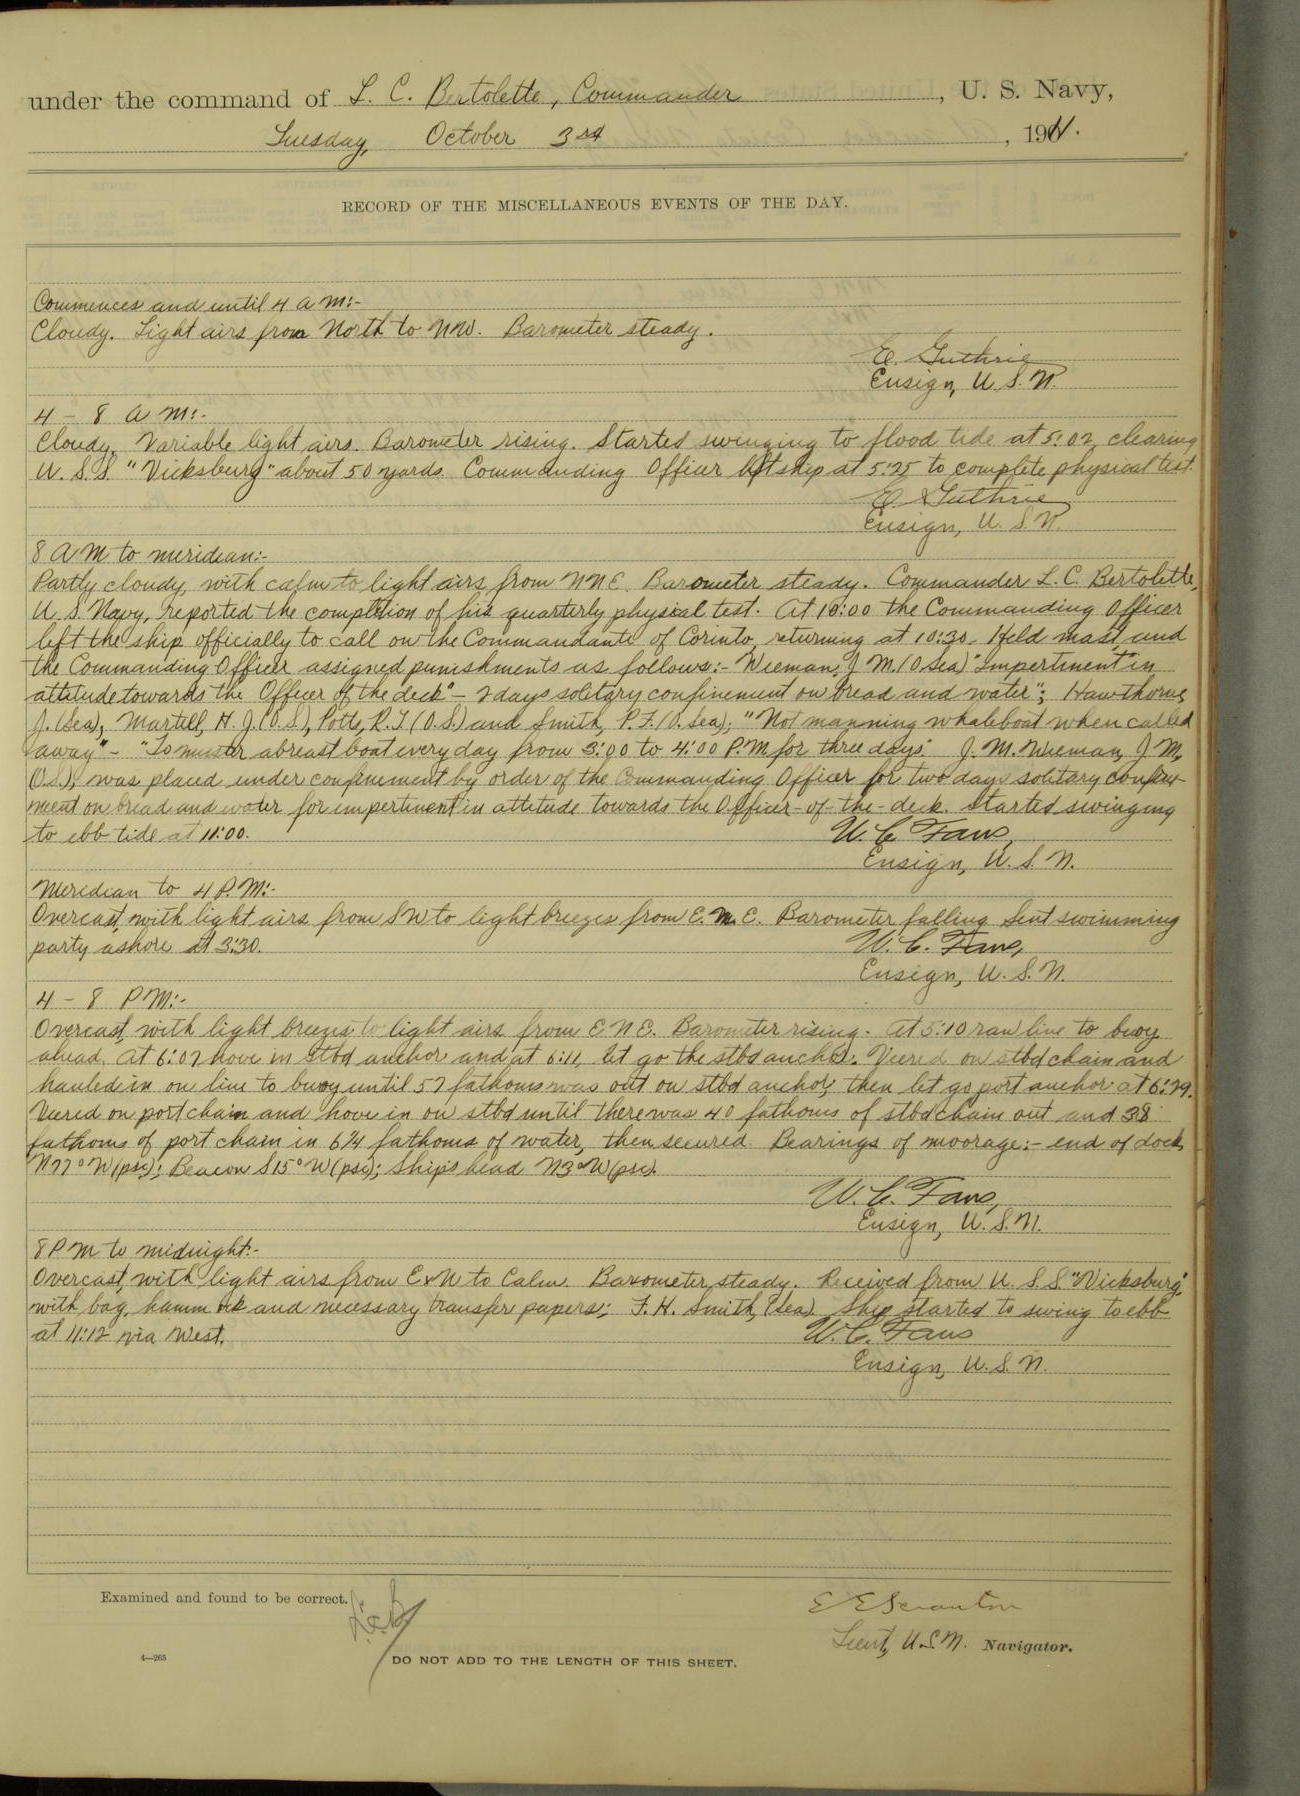 under the command of L. C. Bertolette, Commander, U. S. Navy,
Tuesday, October 3rd, 1911.
RECORD OF THE MISCELLANEOUS EVENTS OF THE DAY.
Commences and until 4 a m:-
Cloudy. Light airs from North to NW. Barometer steady.
E. Guthrie
Ensign, U.S.N.
4 - 8 a m:-
Cloudy. Variable light airs. Barometer rising. Started swinging to flood tide at 5:02, clearing
U.S.S. "Vicksburg" about 50 yards. Commanding Officer left ship at 5:25 to complete physical test.
E. Guthrie
Ensign, U.S.N.
8 A M to meridian:-
Partly cloudy, with calm to light airs from NNE. Barometer steady. Commander L. C. Bertolette,
U.S. Navy, reported the completion of his quarterly physical test. At 10:00 the Commanding Officer
left the ship officially to call on the Commandante of Corinto, returning at 10:30. Held mast, and
the Commanding Officer assigned punishments as follows:- Wieman, J M. (O Sea) "Impertinent in
attitude towards the Officer of the deck" - 2 days solitary confinement on bread and water"; Hawthorne,
J. (Sea), Martell, H. J. (O.S.), Potts, R. T (O.S.) and Smith, P. F. (O. Sea); "Not manning whaleboat when called
away" - "To muster abreast boat every day from 3:00 to 4:00 P.M for three days" J. M. Wieman, J M,
(O.S.), was placed under confinement by order of the Commanding Officer for two days solitary confine-
ment on bread and water for impertinent in attitude towards the Officer-of-the-deck. Started swinging
to ebb tide at 11:00.
W. C. Faus,
Ensign, U.S.N.
Meridian to 4 P.M:-
Overcast, with light airs from SW to light breezes from E.N.E. Barometer falling. Sent swimming
party ashore at 3:30.
W. C. Faus,
Ensign, U.S.N.
4 - 8 P M:-
Overcast, with light breezes to light airs from E N E. Barometer rising. At 5:10 ran line to buoy
ahead. At 6:07 hove in stbd anchor and at 6:11, let go the stbd anchor. Veered on stbd chain and
hauled in on line to buoy until 57 fathoms was out on stbd anchor, then let go port anchor at 6:29.
Veered on port chain and hove in on stbd until there was 40 fathoms of stbd chain out and 38
fathoms of port chain in 6¼ fathoms of water, then secured. Bearings of moorage:- end of dock,
N77°W (psc); Beacon S15°W (psc); Ship's head N3°W (psc).
W. C. Faus,
Ensign, U.S.N.
8 P M to midnight:-
Overcast, with light airs from ExN to Calm. Barometer steady. Received from U.S.S. "Vicksburg",
with bag, hammock and necessary transfer papers; F. H. Smith, (Sea). Ship started to swing to ebb
at 11:12 via West.
W. C. Faus
Ensign, U.S.N.
Examined and found to be correct.
L.C.B.
E E Scranton
Lieut, U.S.N. Navigator.
4—265
DO NOT ADD TO THE LENGTH OF THIS SHEET.